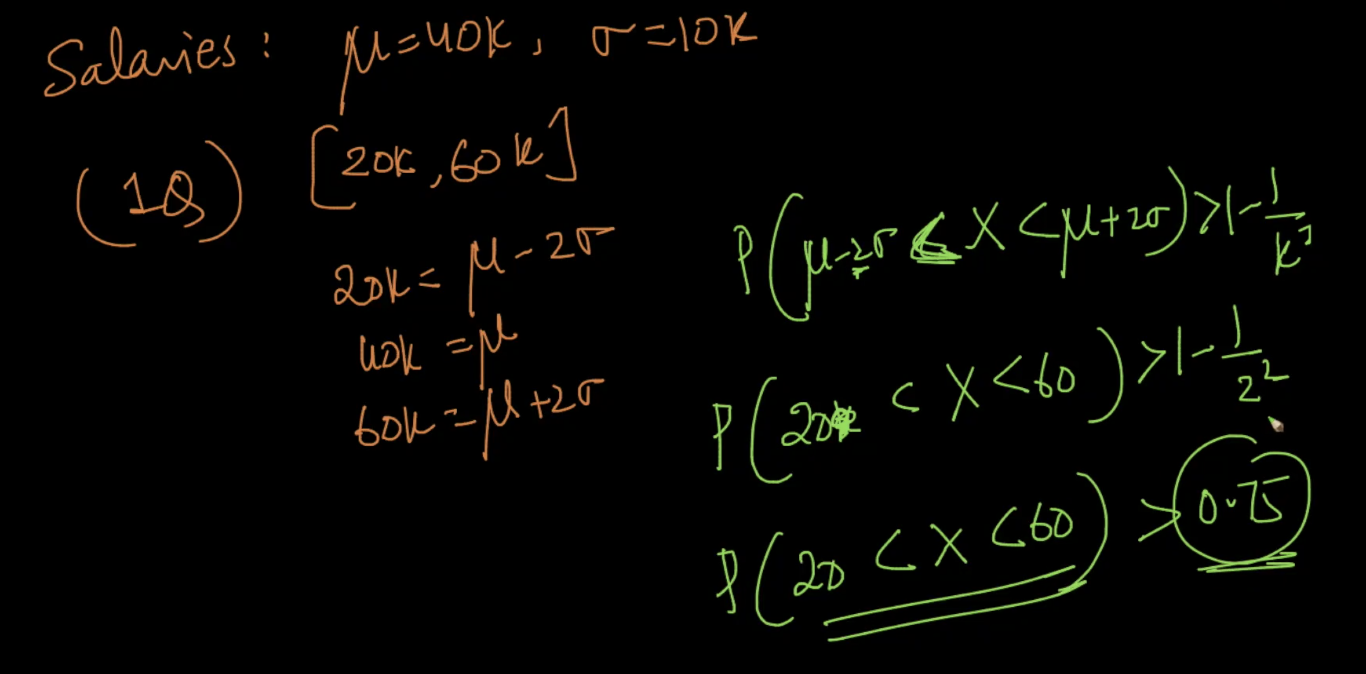 Salaries: μ=40K, σ=10K
(1Q) [20K, 60K]
20K = μ-2σ
40K = μ
60K = μ+2σ
P(μ-2σ < X < μ+2σ) > 1-1/k²
P(20K < X < 60) > 1-1/2²
P(20 < X < 60) > 0.75